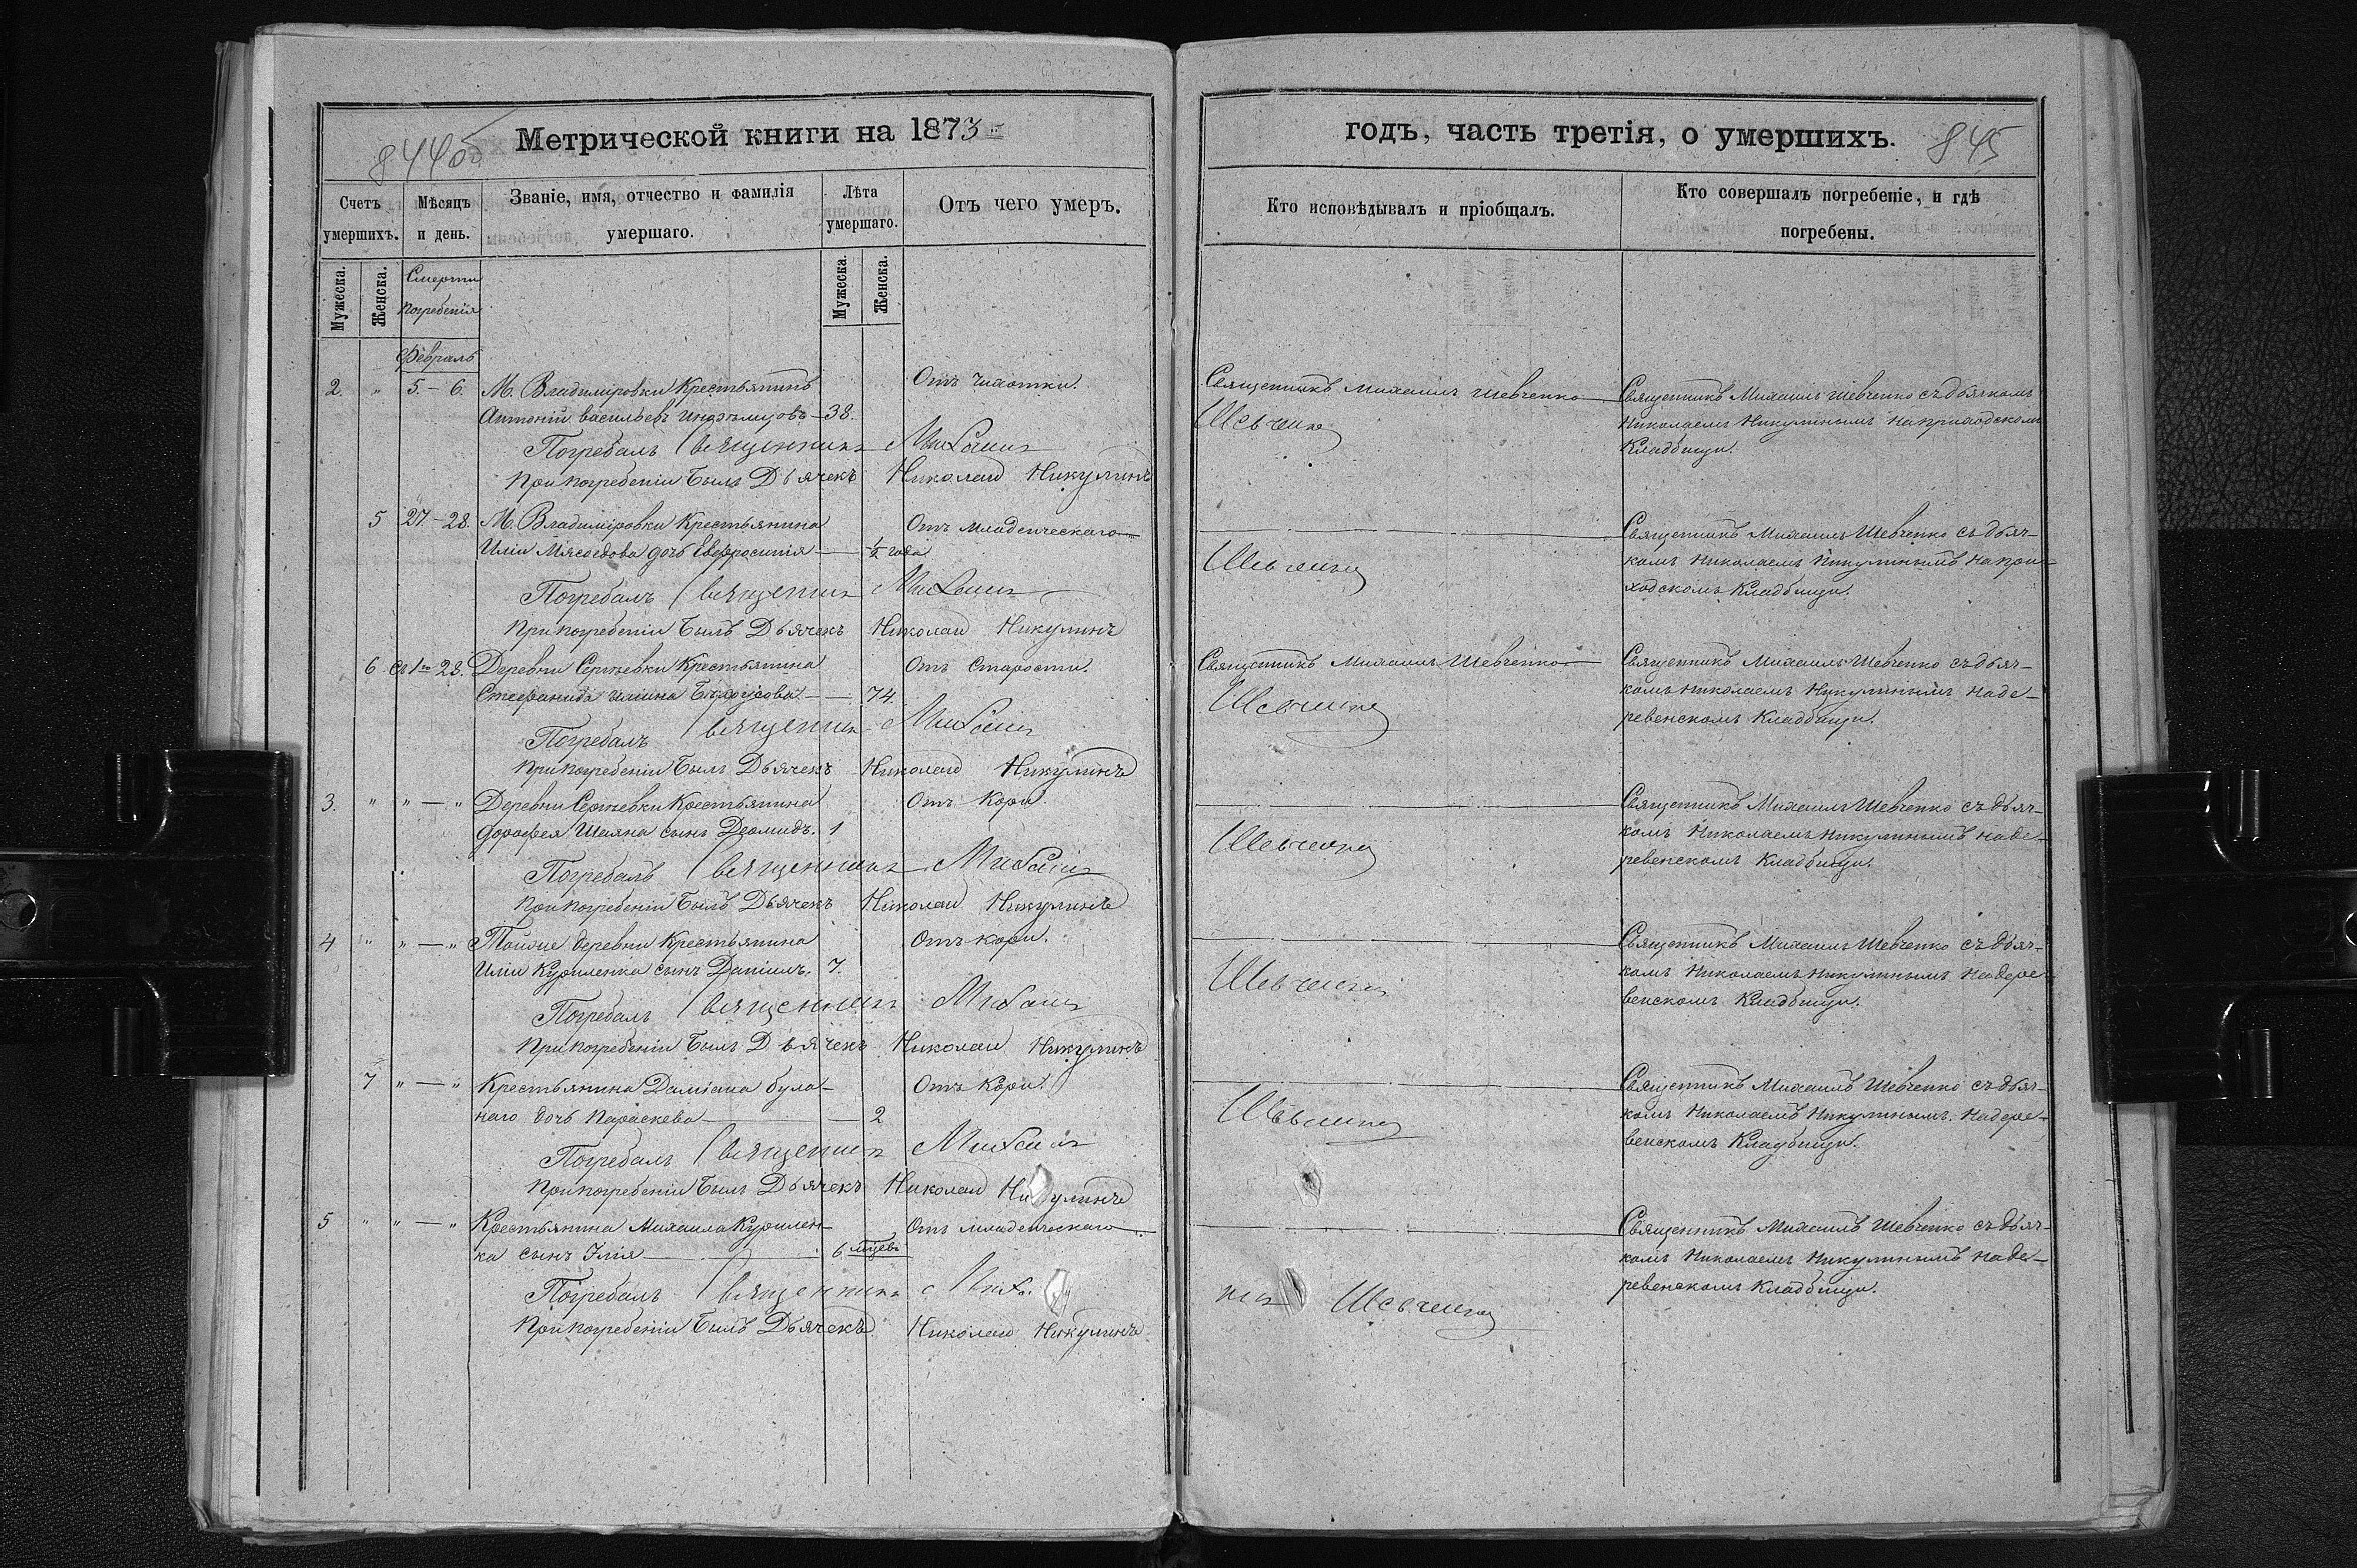 844об
Метрической книги на 1873
Счетъ умершихъ.
Мѣсяцъ и день.
Званіе, имя, отчество и фамилія умершаго.
Лѣта умершаго.
Отъ чего умеръ.
Мужеска.
Женска.
Смерти
погребенія
Мужеска.
Женска.
февраль
2. " 5. – 6. М. Владиміровки Крестьянинъ
Антоній васильевъ 38. Отъ чахотки.
Погребалъ Священникъ Михаилъ
При погребеніи былъ Дьячекъ Николай Никулинъ
5 27. – 28. М. Владиміровки Крестьянина
Иліи Мясоедова дочь Евфросинія — ½ года Отъ младенческаго
Погребалъ Священник Михаилъ
При погребеніи былъ Дьячекъ Николай Никулинъ
6 28. Деревни Сергѣевки Крестьянина
Стефанида ильина — 74. Отъ Старости.
Погребалъ Священник Михаилъ
При погребеніи былъ Дьячекъ Николай Никулинъ
3. " " — " Деревни Сергѣевки Крестьянина
дорофея сынъ Деомидъ. 1 Отъ Кори.
Погребалъ Священникъ Михаилъ
При погребеніи былъ Дьячекъ Николай Никулинъ
4 " " — " Тойже деревни Крестьянина
Иліи Куриленка сынъ Даніилъ. 7. Отъ кори.
Погребалъ Священникъ Михаилъ
При погребеніи былъ Дьячекъ Николай Никулинъ
7 " — " Крестьянина Даміана була-
наго дочь Параскева — 2 Отъ Кори.
Погребалъ Священник Михаилъ
При погребеніи былъ Дьячекъ Николай Никулинъ
5 " " — " Крестьянина Михаила Курилен-
ка сынъ Илія — 6 мцевъ Отъ младенческаго
Погребалъ Священникъ Миха
При погребеніи былъ Дьячекъ Николай Никулинъ
годъ, часть третія, о умершихъ. 845
Кто исповѣдывалъ и пріобщалъ.
Кто совершалъ погребеніе, и гдѣ погребены.
Священникъ Михаилъ Шевченко
Шевченко
Священникъ Михаилъ Шевченко съ дьячкомъ
Николаемъ Никулинымъ на приходскомъ
Кладбищи.
Шевченко
Священникъ Михаилъ Шевченко съ дьяч-
комъ Николаемъ Никулинымъ на при-
ходскомъ Кладбищи.
Священникъ Михаилъ Шевченко
Шевченко
Священникъ Михаилъ Шевченко съ дьяч-
комъ Николаемъ Никулинымъ на де-
ревенскомъ Кладбищи.
Шевченко
Священникъ Михаилъ Шевченко съ дьяч-
комъ Николаемъ Никулинымъ на де-
ревенскомъ Кладбищи.
Шевченко
Священникъ Михаилъ Шевченко съ дьяч-
комъ Николаемъ Никулинымъ на дере-
венскомъ Кладбищи.
Шевченко
Священникъ Михаилъ Шевченко съ дьяч-
комъ Николаемъ Никулинымъ на дере-
венскомъ Кладбищи.
Шевченко
Священникъ Михаилъ Шевченко съ дьяч-
комъ Николаемъ Никулинымъ на де-
ревенскомъ Кладбищи.